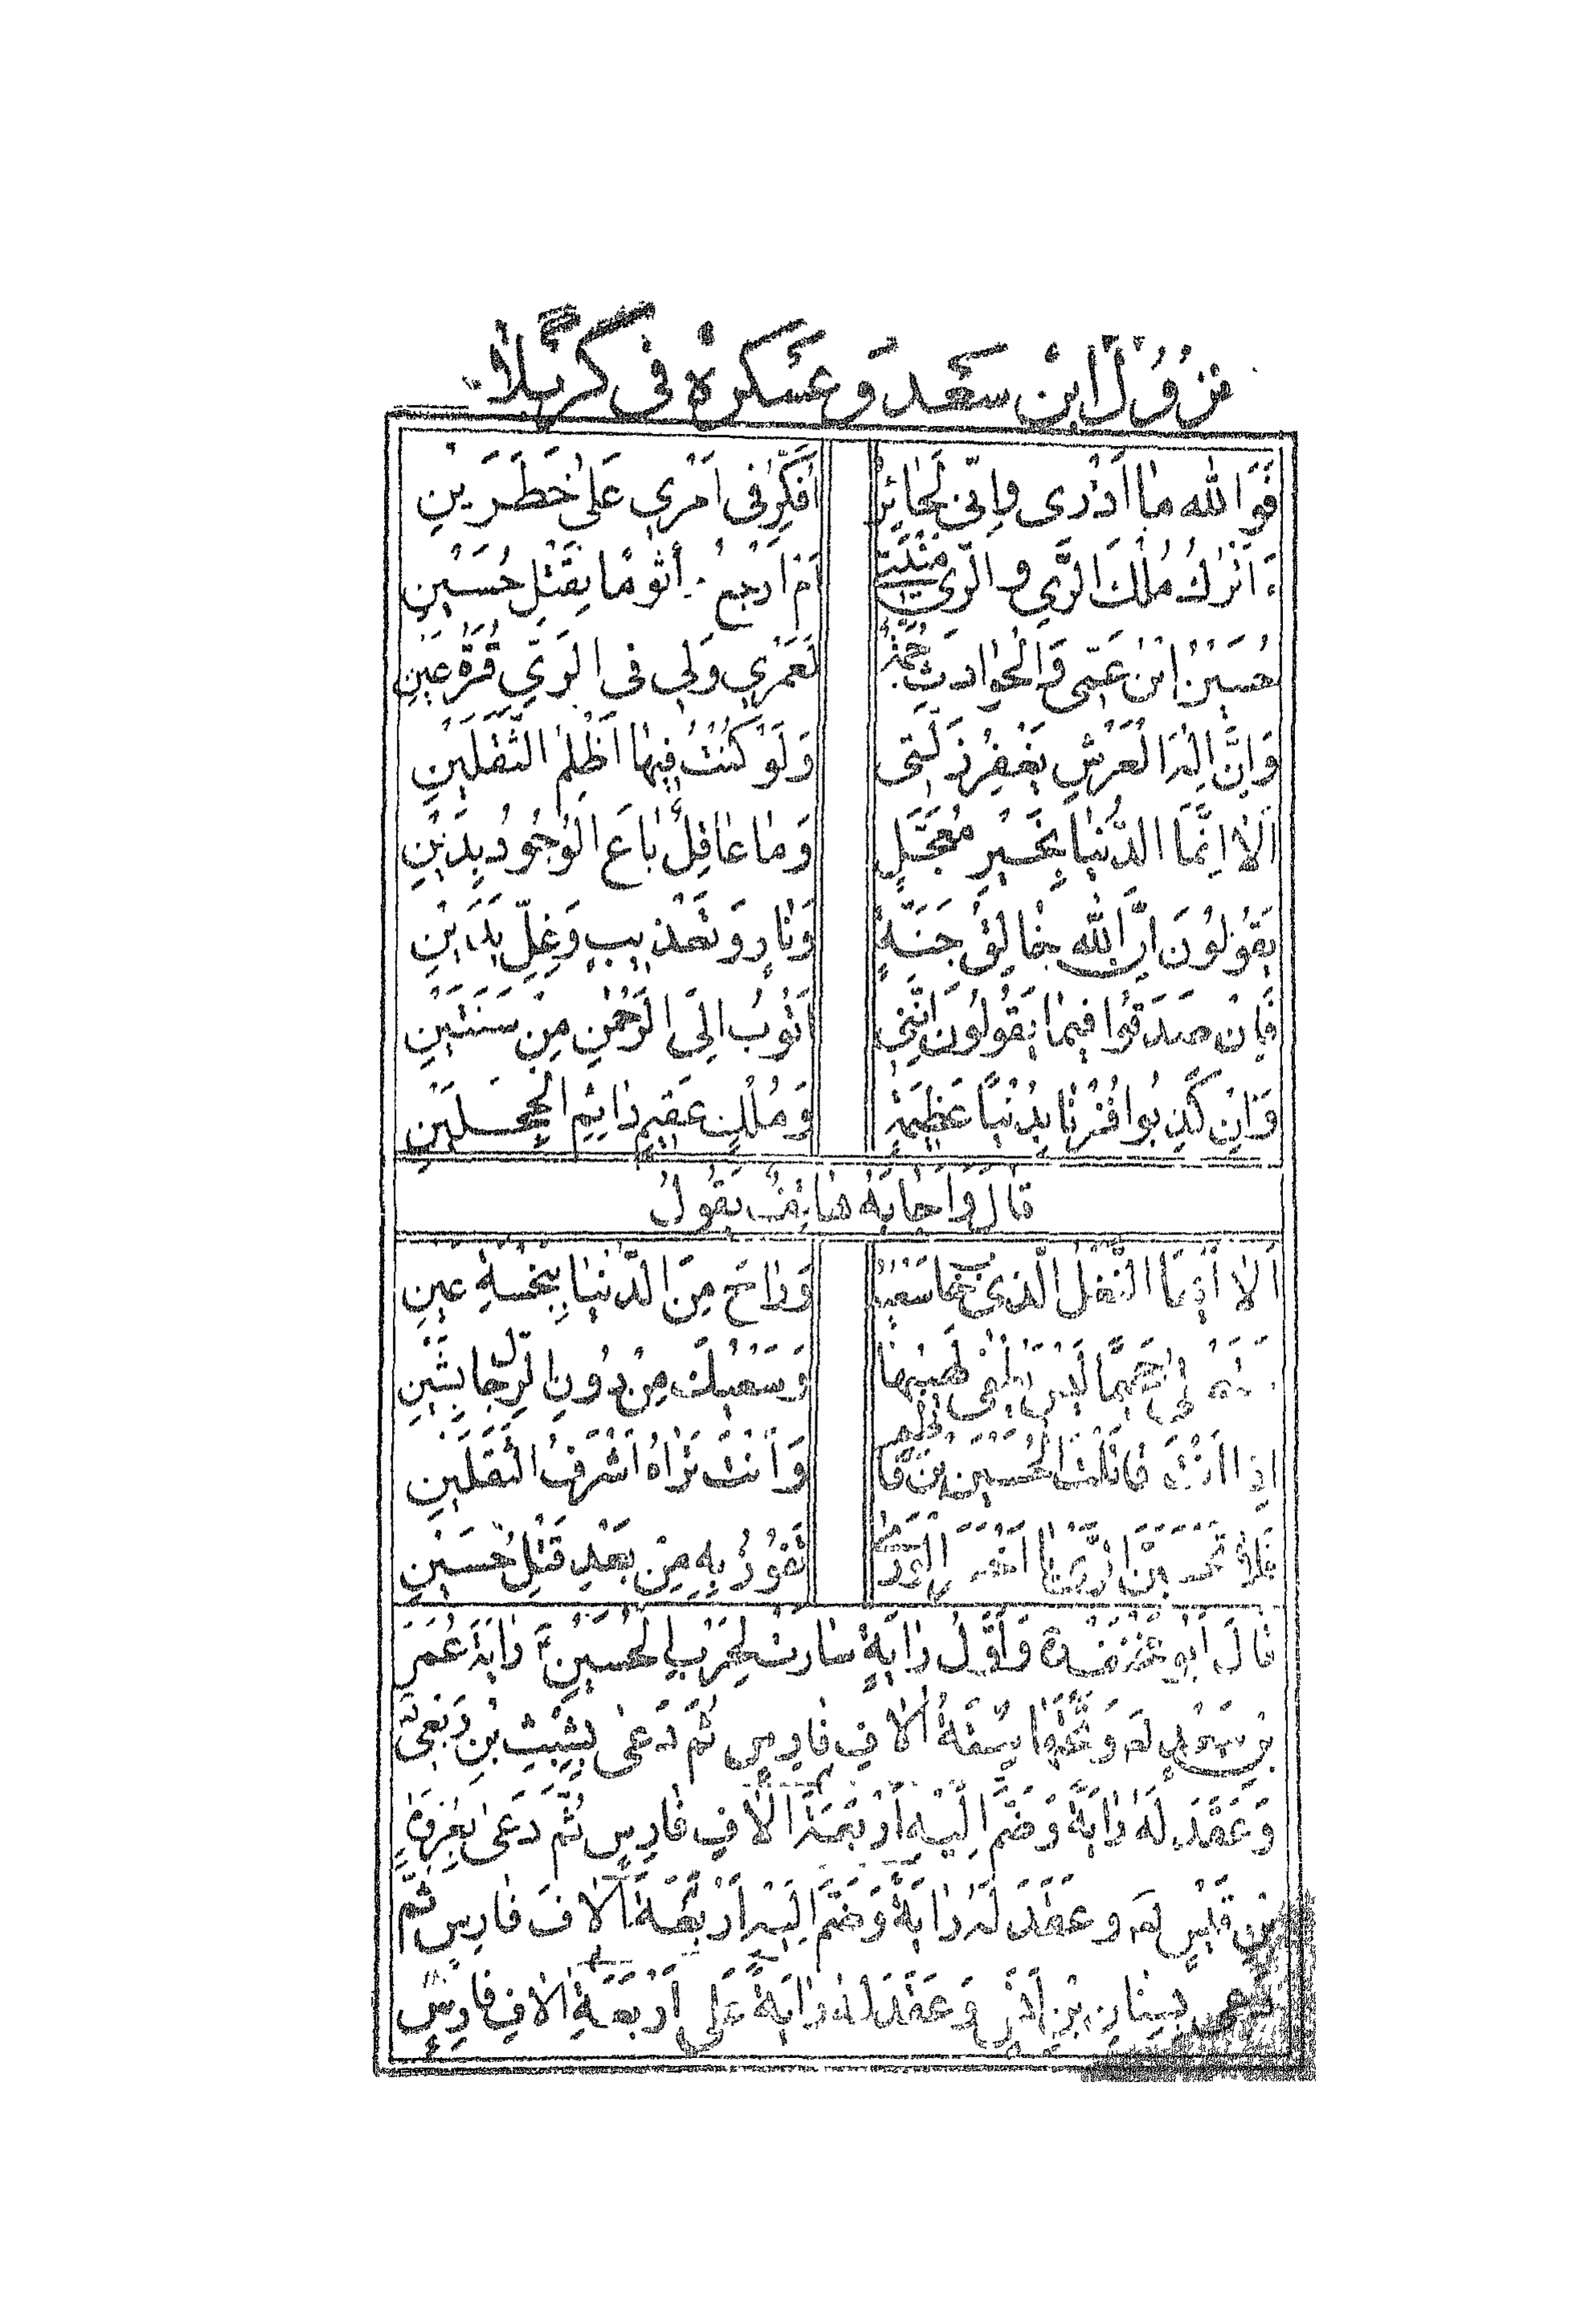 نزول ابن سعد و عسكره فى كربلا
فَوَاللهِ مٰا اَدْرى وَاِنّى لَحٰائِرٌ اُفَكِّرُ فى اَمْرى عَلىٰ خَطَرَيْنِ
ءَاَتْرُكُ مُلْكَ الرَّىِ وَ الرَّىُ مُنْيَتى اَمْ اَرْجِعُ مَأْثُومًا بِقَتْلِ حُسَيْنِ
حُسَيْنُ ابْنُ عَمّى وَالْحَوٰادِثُ جَمَّةٌ لَعَمْرى وَلى فِى الرَّىِ قُرَّةُ عَيْنِ
وَاِنَّ اِلٰهَ الْعَرْشِ يَغْفِرُ زَلَّتى وَلَوْ كُنْتُ فيهٰا اَظْلَمَ الثَّقَلَيْنِ
اَلاٰ اِنَّمَا الدُّنْيٰا بِخَيْرٍ مُعَجَّلٍ وَمٰا عٰاقِلٌ بٰاعَ الْوُجُودَ بِدَيْنِ
يَقُولُونَ اِنَّ اللهَ خٰالِقُ جَنَّةٍ وَنٰارٍ وَتَعْذيبٍ وَغِلِّ يَدَيْنِ
فَاِنْ صَدَقُوا فيمٰا يَقُولُونَ اِنَّنى اَتُوبُ اِلَى الرَّحْمٰنِ مِنْ سَنَتَيْنِ
وَاِنْ كَذِبُوا فُزْنٰا بِدُنْيًا عَظيمَةٍ وَمُلْكٍ عَقيمٍ دٰائِمِ الْحِجْلَيْنِ
قٰالَ وَاَجٰابَهُ هٰاتِفٌ يَقُولُ
اَلاٰ اَيُّهَا النَّغْلُ الَّذى خٰابَ سَعْيُهُ وَرٰاحَ مِنَ الدُّنْيٰا بِبَخْسَةِ عَيْنِ
جَحيمًا لَيْسَ يُطْفىٰ لَهيبُهٰا وَسَعْيُكَ مِنْ دُونِ الرِّجٰالِ بِشَيْنِ
اِذٰا اَنْتَ قٰاتَلْتَ الْحُسَيْنَ بْنَ فٰاطِمٍ وَاَنْتَ تَرٰاهُ اَشْرَفَ الثَّقَلَيْنِ
فَلاٰ تَحْسَبَنَّ الرَّىَ يٰا اَخْسَرَ الْوَرىٰ تَفُوزُ بِهِ مِنْ بَعْدِ قَتْلِ حُسَيْنِ
قٰالَ اَبُو مِخْنَفٍ وَاَوَّلُ رٰايَةٍ سٰارَتْ لِحَرْبِ الْحُسَيْنِ رٰايَةُ عُمَرَ
بْنِ سَعْدٍ لع وَتَحْتَهٰا سِتَّةُ اٰلاٰفِ فٰارِسٍ ثُمَّ دَعىٰ بِشَبَثِ بْنِ رَبْعى لع
وَعَقَدَ لَهُ رٰايَةً وَضَمَّ اِلَيْهِ اَرْبَعَةَ اٰلاٰفِ فٰارِسٍ ثُمَّ دَعىٰ بِعُرْوَةَ
بْنِ قَيْسٍ لع وَ عَقَدَ لَهُ رٰايَةً وَضَمَّ اِلَيْهِ اَرْبَعَةَ اٰلاٰفَ فٰارِسٍ ثُمَّ
دَعىٰ بِسِنٰانِ بْنِ اَنَسٍ وَعَقَدَ لَهُ رٰايَةً عَلىٰ اَرْبَعَةِ اٰلاٰفِ فٰارِسٍ